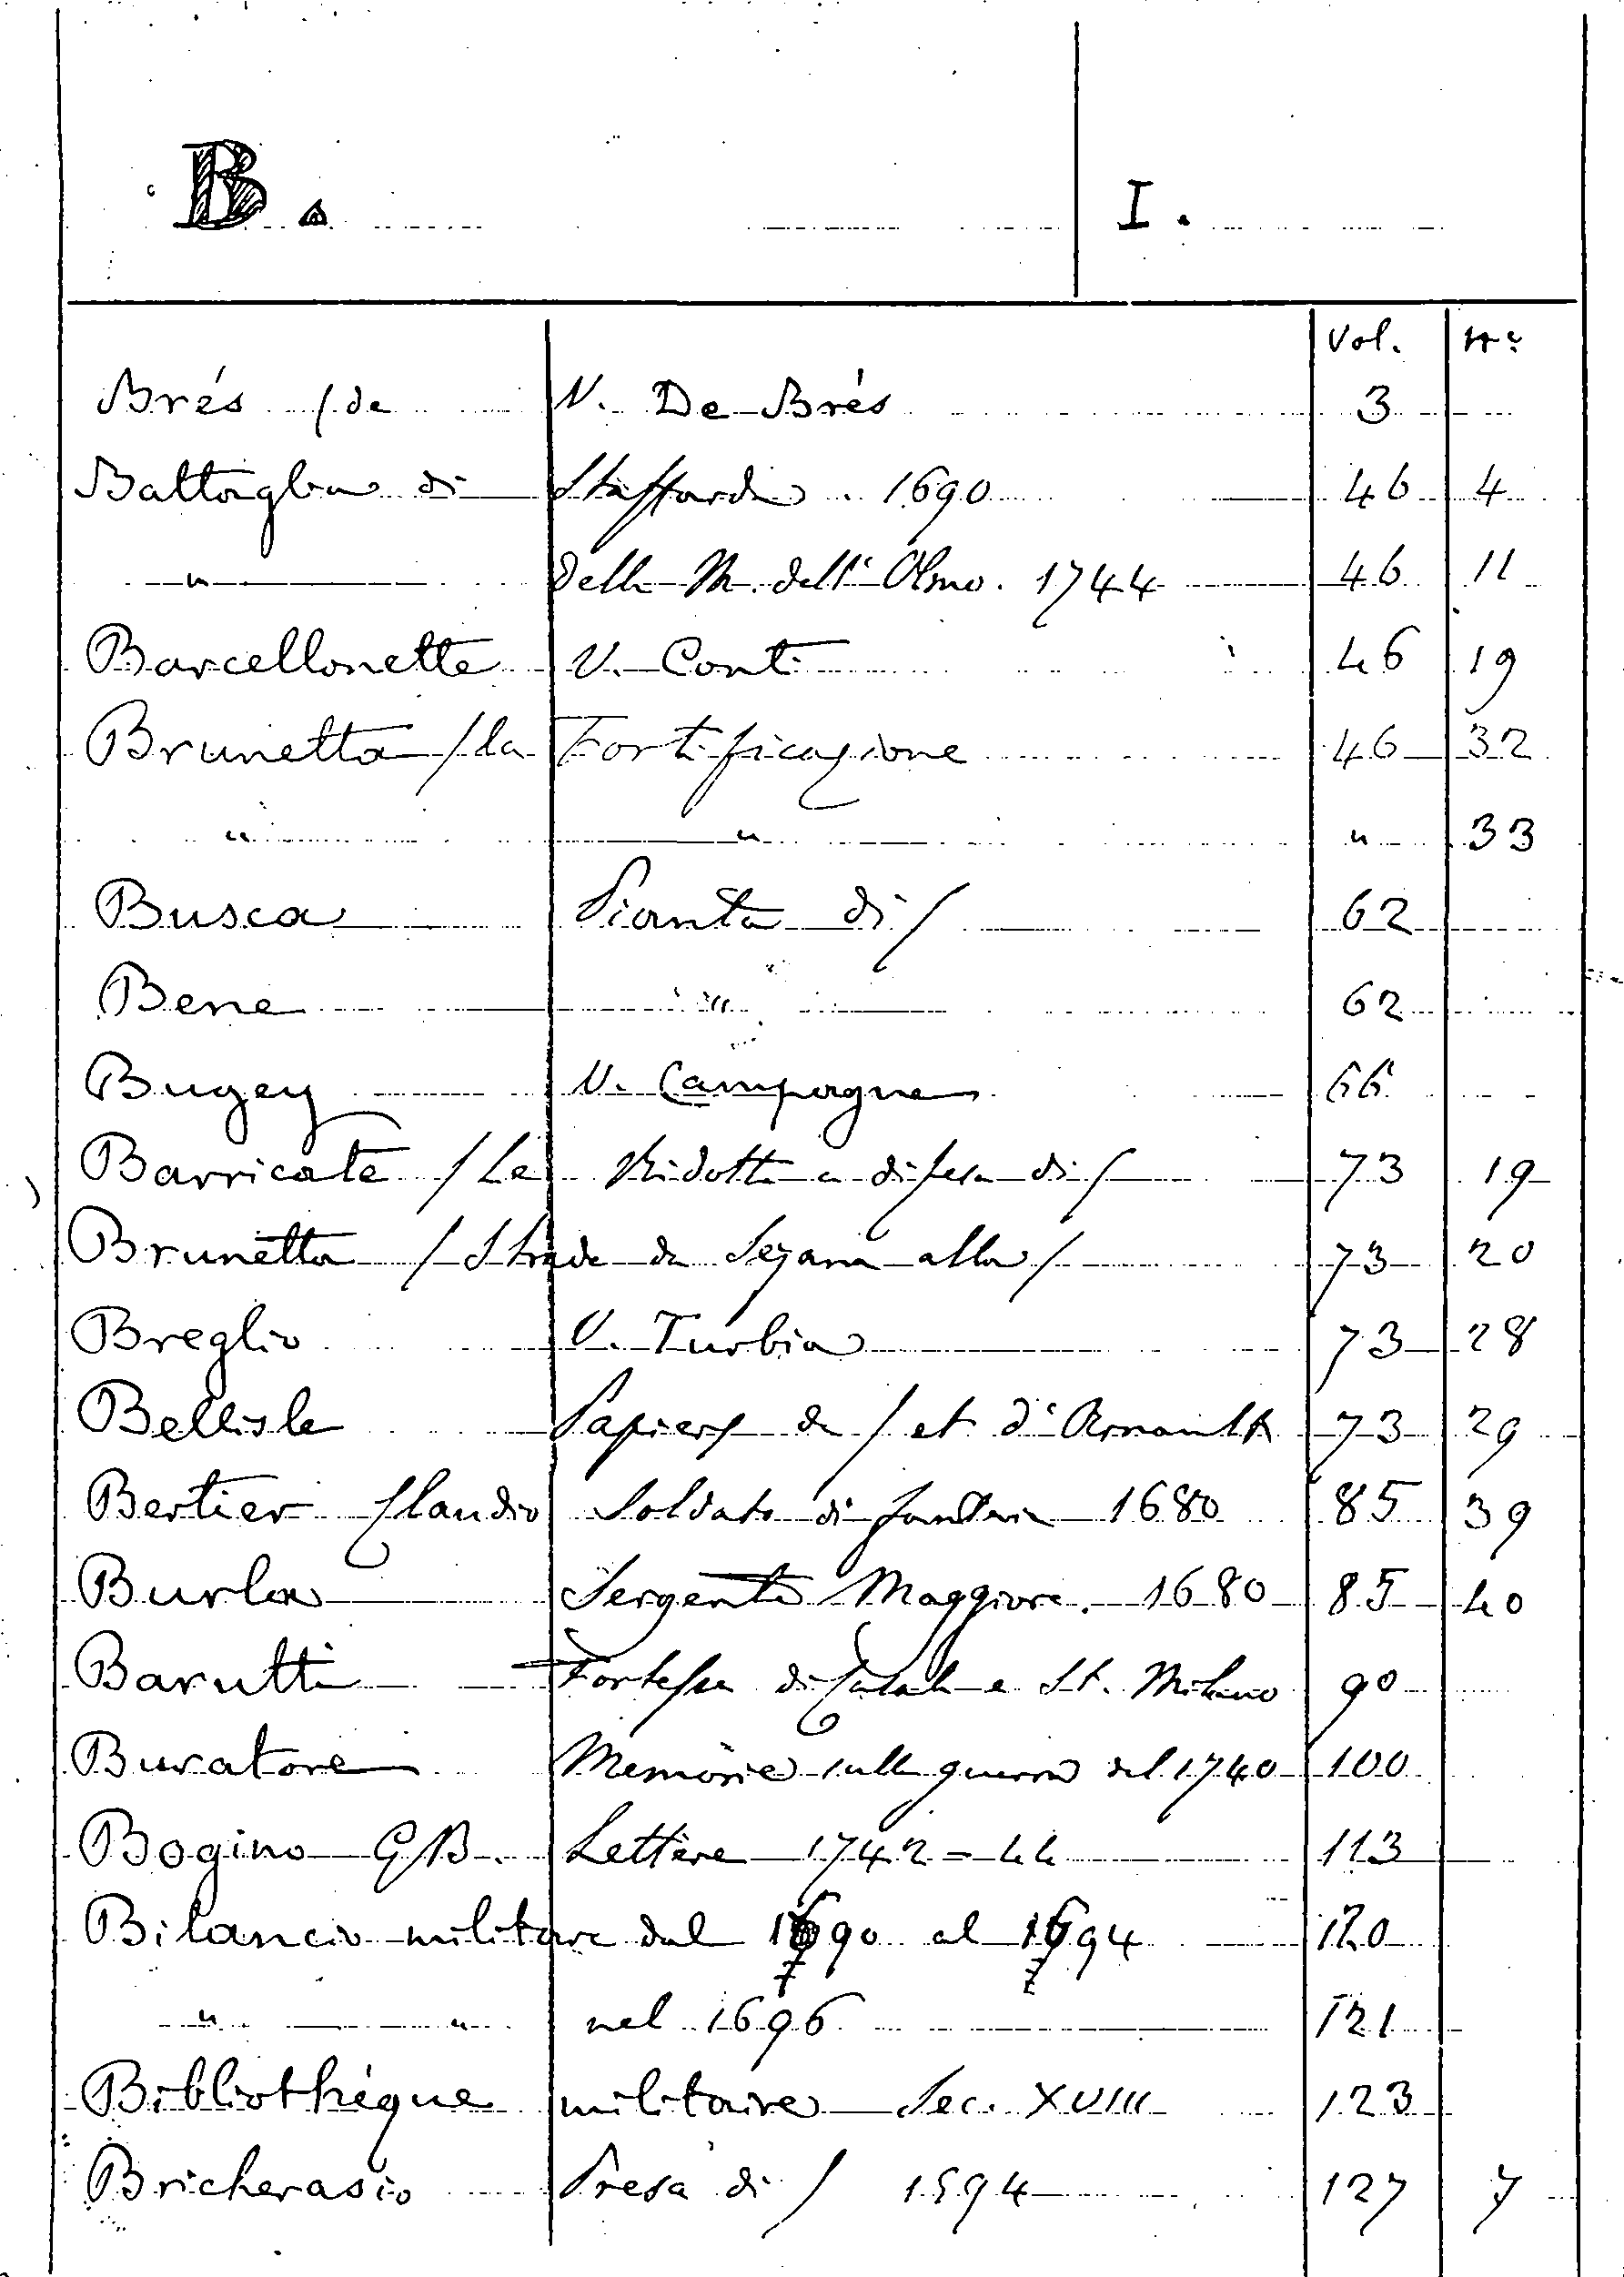 B. I.
Vol. Nº
Brés /de V. De Brés 3
Battaglia di Staffarda . 1690 46 4
" della M. dell' Olmo. 1744 46 11
Barcellonette V. Conti 46 19
Brunetta /la Fortificazione 46 32
" " " 33
Busca Pianta di / 62
Bene " 62
Bugey V. Campagne 66
Barricate /Le Ridotti a difesa di / 73 19
Brunetta / Strada da Sezana alla / 73 20
Breglio V. Turbia 73 28
Bellisle Papiers de / et d' Arnault 73 29
Bertier Claudio Soldato di fanteria 1680 85 39
Burla Sergente Maggiore. 1680 85 40
Barutti Fortezza di Casale e St. Milano 90
Buratore Memorie sulla guerra del 1740 100
Bogino GB. Lettere 1742-44 113
Bilancio militare dal 1690 al 1694 120
7 7
" " nel 1696 121
Bibliothéque militaire Sec. XVIII 123
Bricherasio Presa di / 1594 127 7